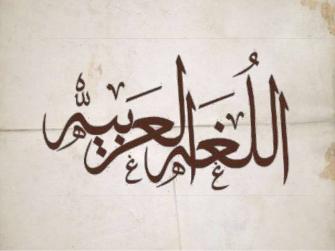 اللغه العربيه